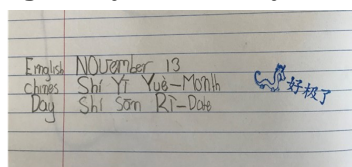 Emglish NOVEmber 13
chines Shí Yī Yuè-Month
Day Shí Sān Rì-Date
好极了